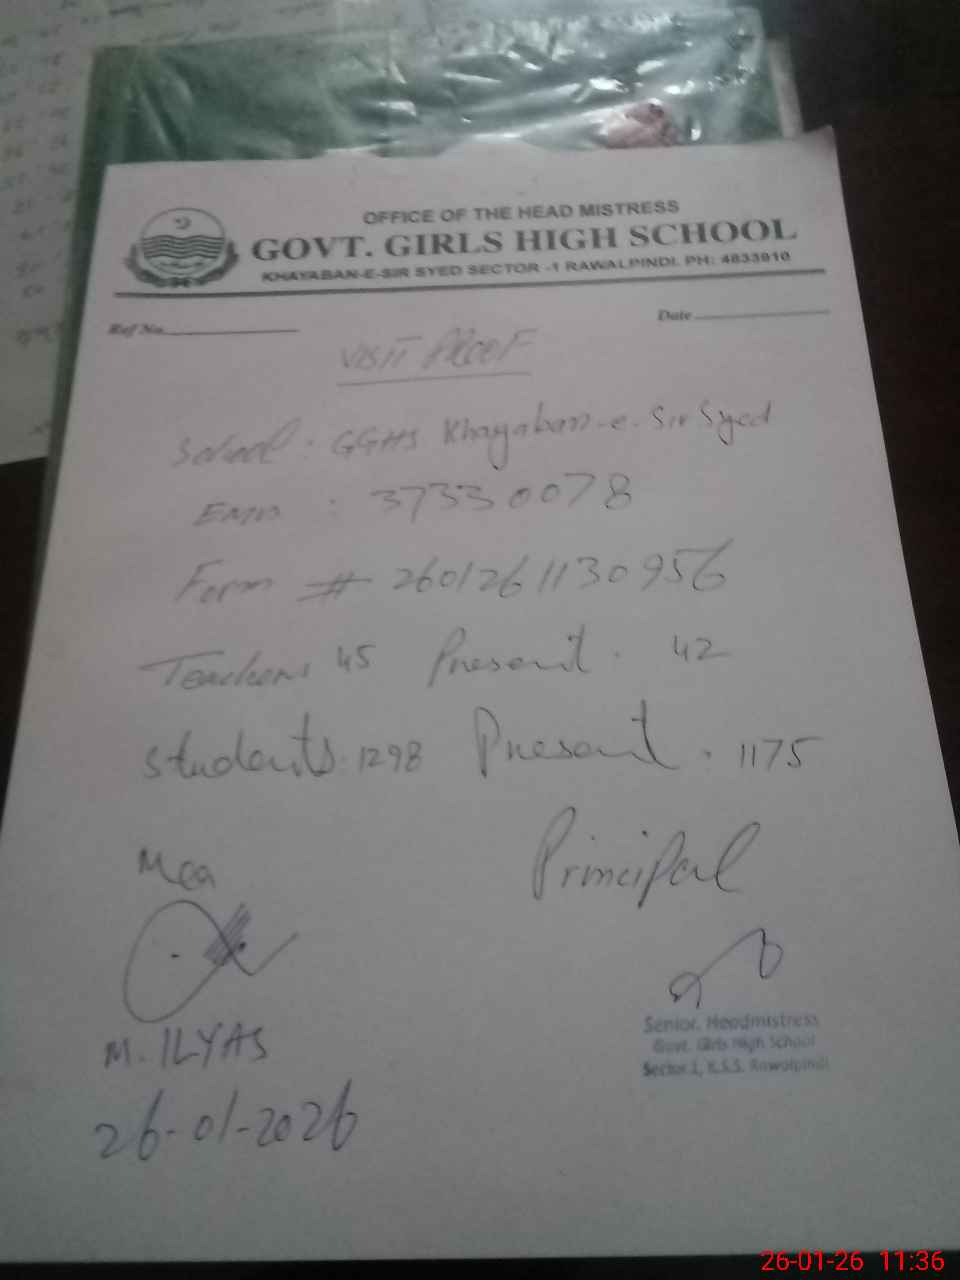 OFFICE OF THE HEAD MISTRESS
GOVT. GIRLS HIGH SCHOOL
KHAYABAN-E-SIR SYED SECTOR -1 RAWALPINDI. PH: 4833910
Ref No.
Date
VISIT PROOF
School : GGHS Khayaban-e-Sir Syed
Emis : 37330078
Form # 2601261130956
Teachers 45 Present . 42
Students : 1298 Present . 1175
Mea
Principal
M. ILYAS
26-01-2026
Senior. Headmistress
Govt. Girls High School
Sector 1, K.S.S. Rawalpindi
26-01-26 11:36